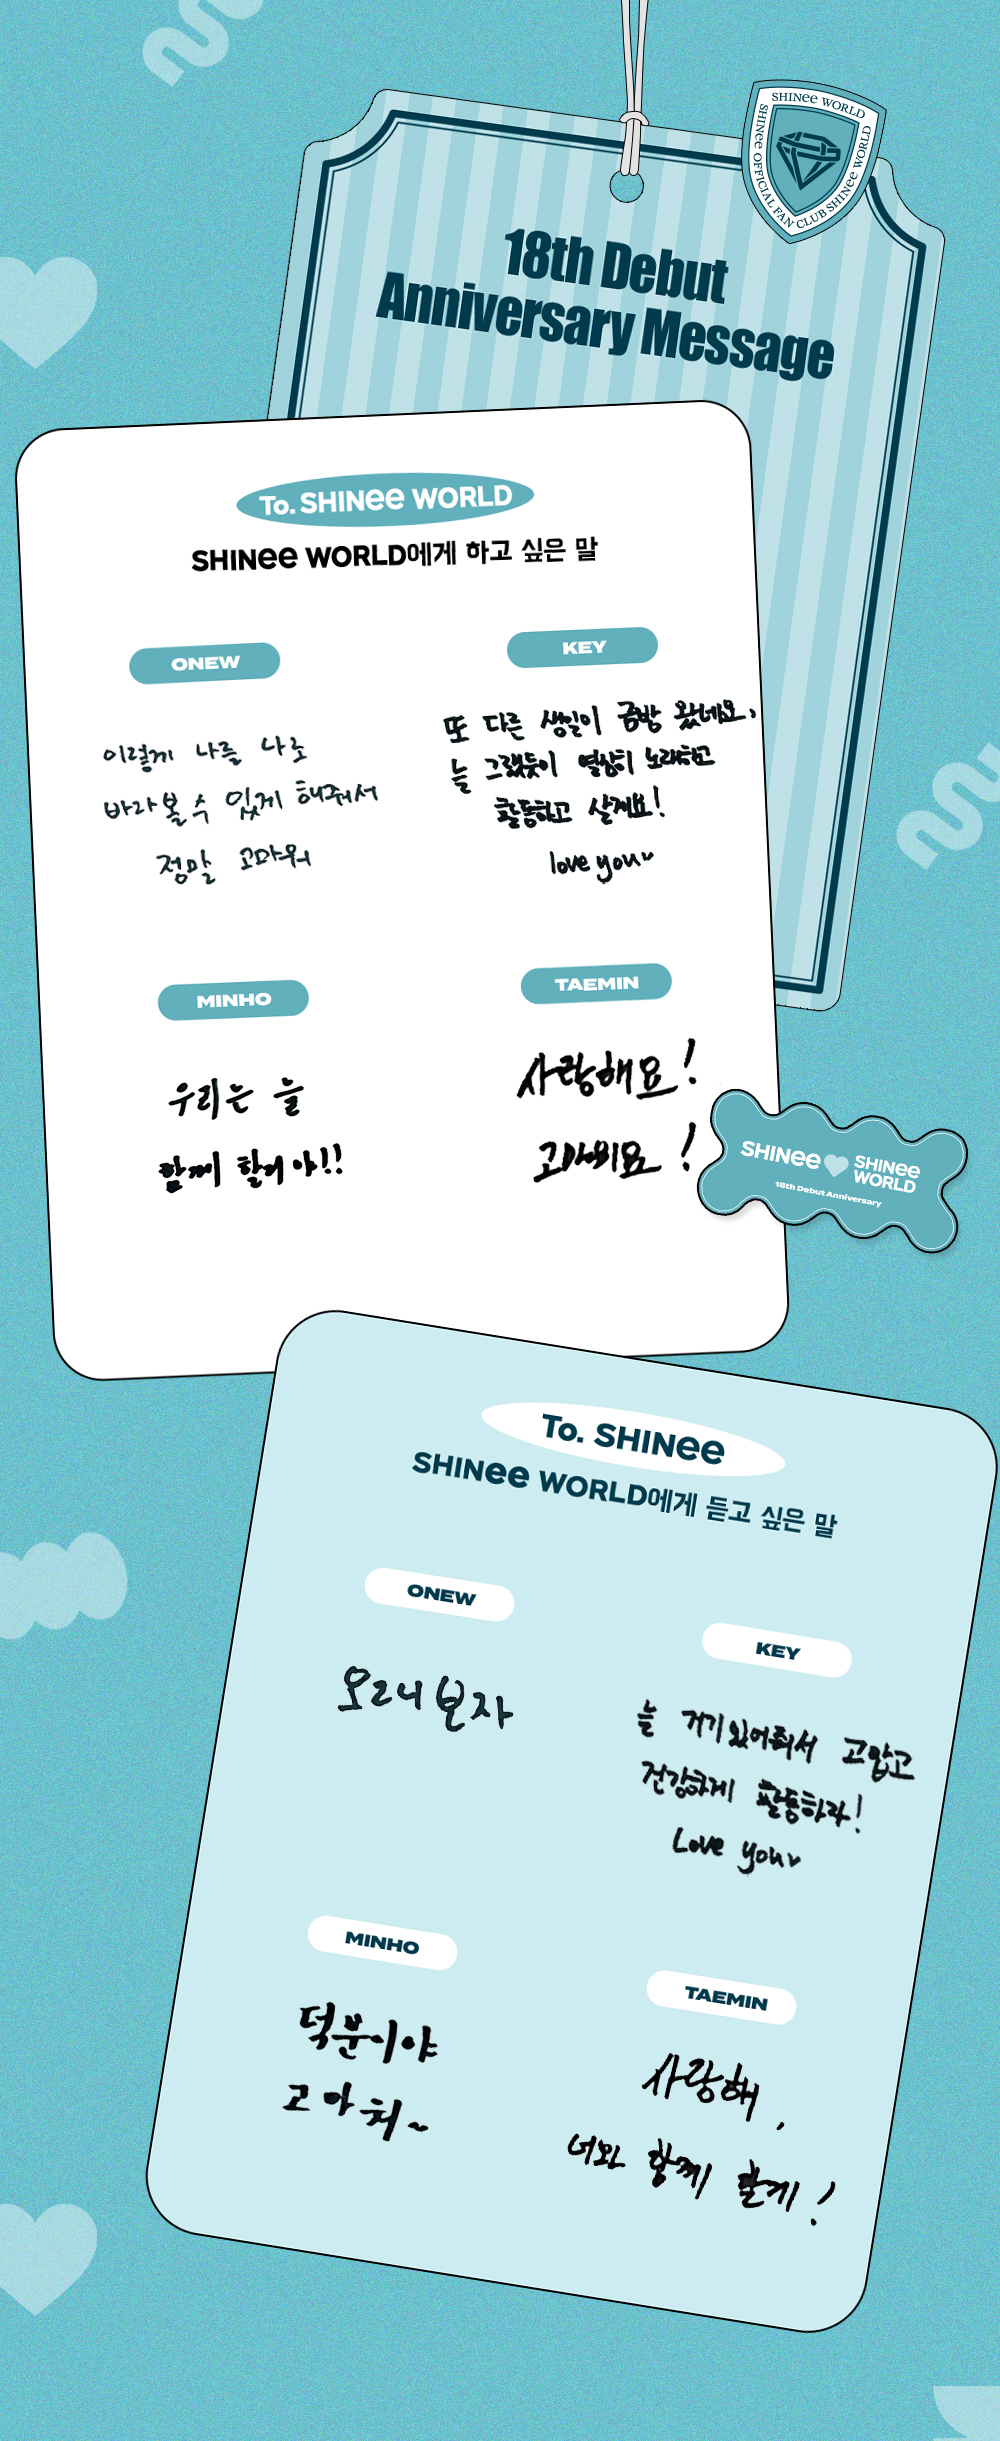 SHINee WORLD
SHINee OFFICIAL FAN CLUB SHINee WORLD
18th Debut
Anniversary Message
To. SHINee WORLD
SHINee WORLD에게 하고 싶은 말
ONEW
이렇게 나를 나로
바라볼 수 있게 해줘서
정말 고마워
KEY
또 다른 생일이 금방 왔네요,
늘 그랬듯이 열심히 노래하고
활동하고 살게요!
love you
MINHO
우리는 늘
함께 할거야!!
TAEMIN
사랑해요!
고마워요!
SHINee SHINee
WORLD
18th Debut Anniversary
To. SHINee
SHINee WORLD에게 듣고 싶은 말
ONEW
오래 보자
KEY
늘 거기있어줘서 고맙고
건강하게 활동하라!
Love you
MINHO
덕분이야
고마워~
TAEMIN
사랑해,
너와 함께 할게!